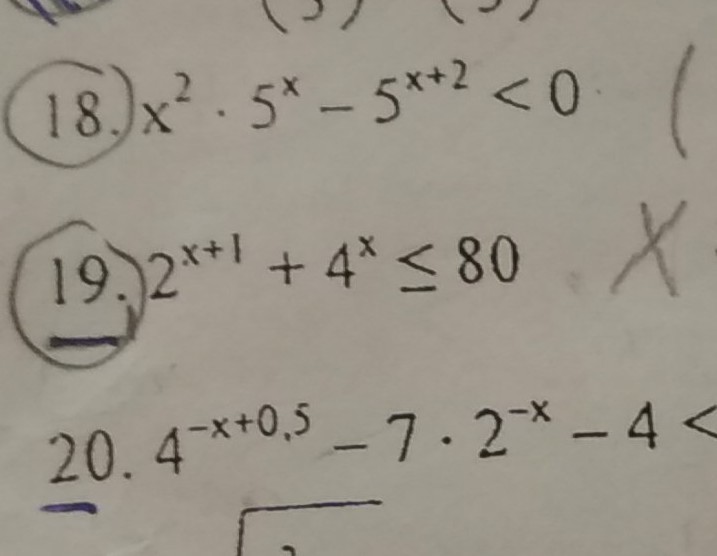 18. x² · 5ˣ − 5ˣ⁺² < 0 (
19. 2ˣ⁺¹ + 4ˣ ≤ 80 X
20. 4⁻ˣ⁺⁰,⁵ − 7 · 2⁻ˣ − 4 <